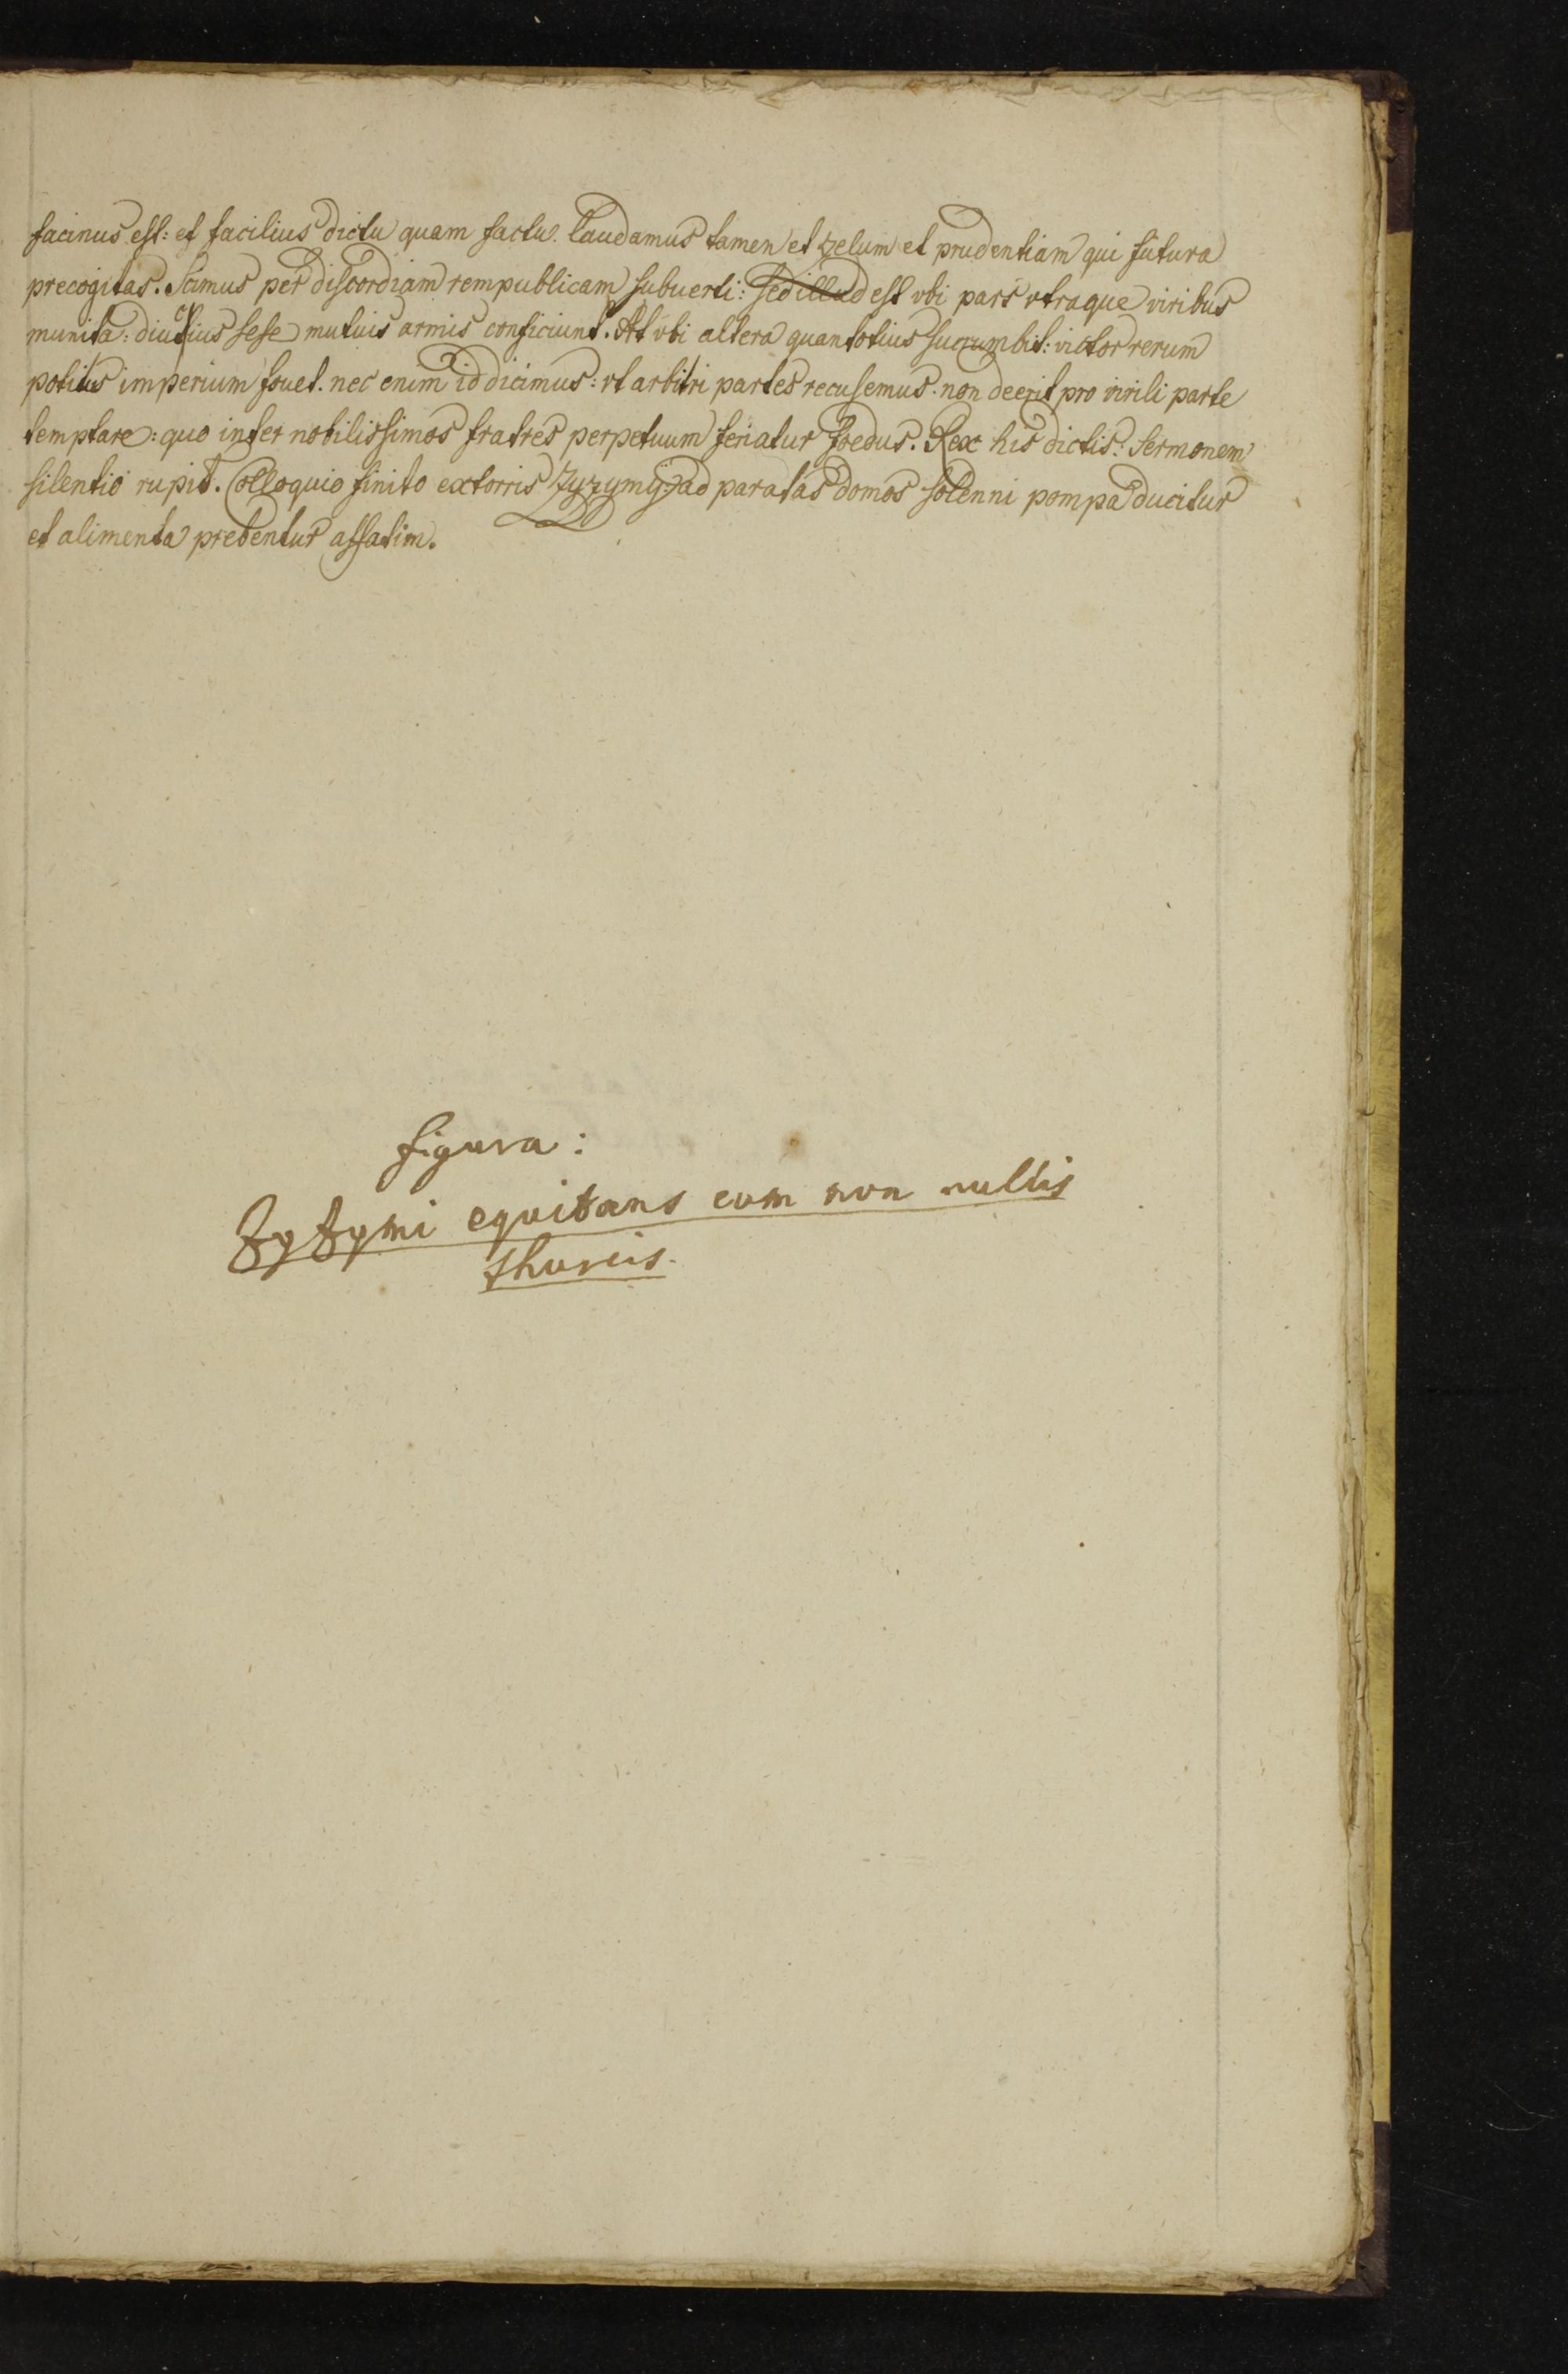 facinus est: et facilius dictu quam factu. laudamus tamen et zelum et prudentiam qui futura
precogitas. Scimus per discordiam rempublicam subuerti: sed illud est vbi pars vtraque viribus
munita: diutius sese mutuis armis conficiunt. At vbi altera quantotius succumbit: victor rerum
potitus imperium fouet. nec enim id dicimus: vt arbitri partes recusemus. non deerit pro virili parte
temptare: quo inter nobilissimos fratres perpetuum feriatur foedus. Rex his dictis: sermonem
silentio rupit. Colloquio finito extorris Zyzymy: ad paratas domos solenni pompa ducitur
et alimenta prebentur affatim.
figura:
Zyzymi equitans cum non nullis
thurcis.